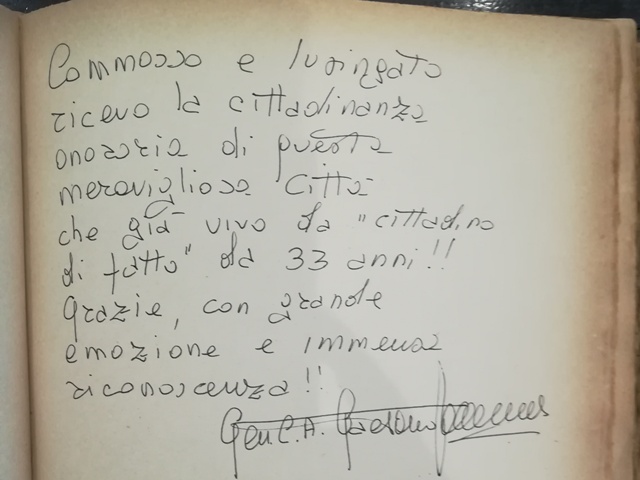 Commosso e lusingato
ricevo la cittadinanza
onoraria di questa
meravigliosa Città
che già vivo da "cittadino
di fatto" da 33 anni!!
Grazie, con grande
emozione e immensa
riconoscenza!!
Gen. C.A.